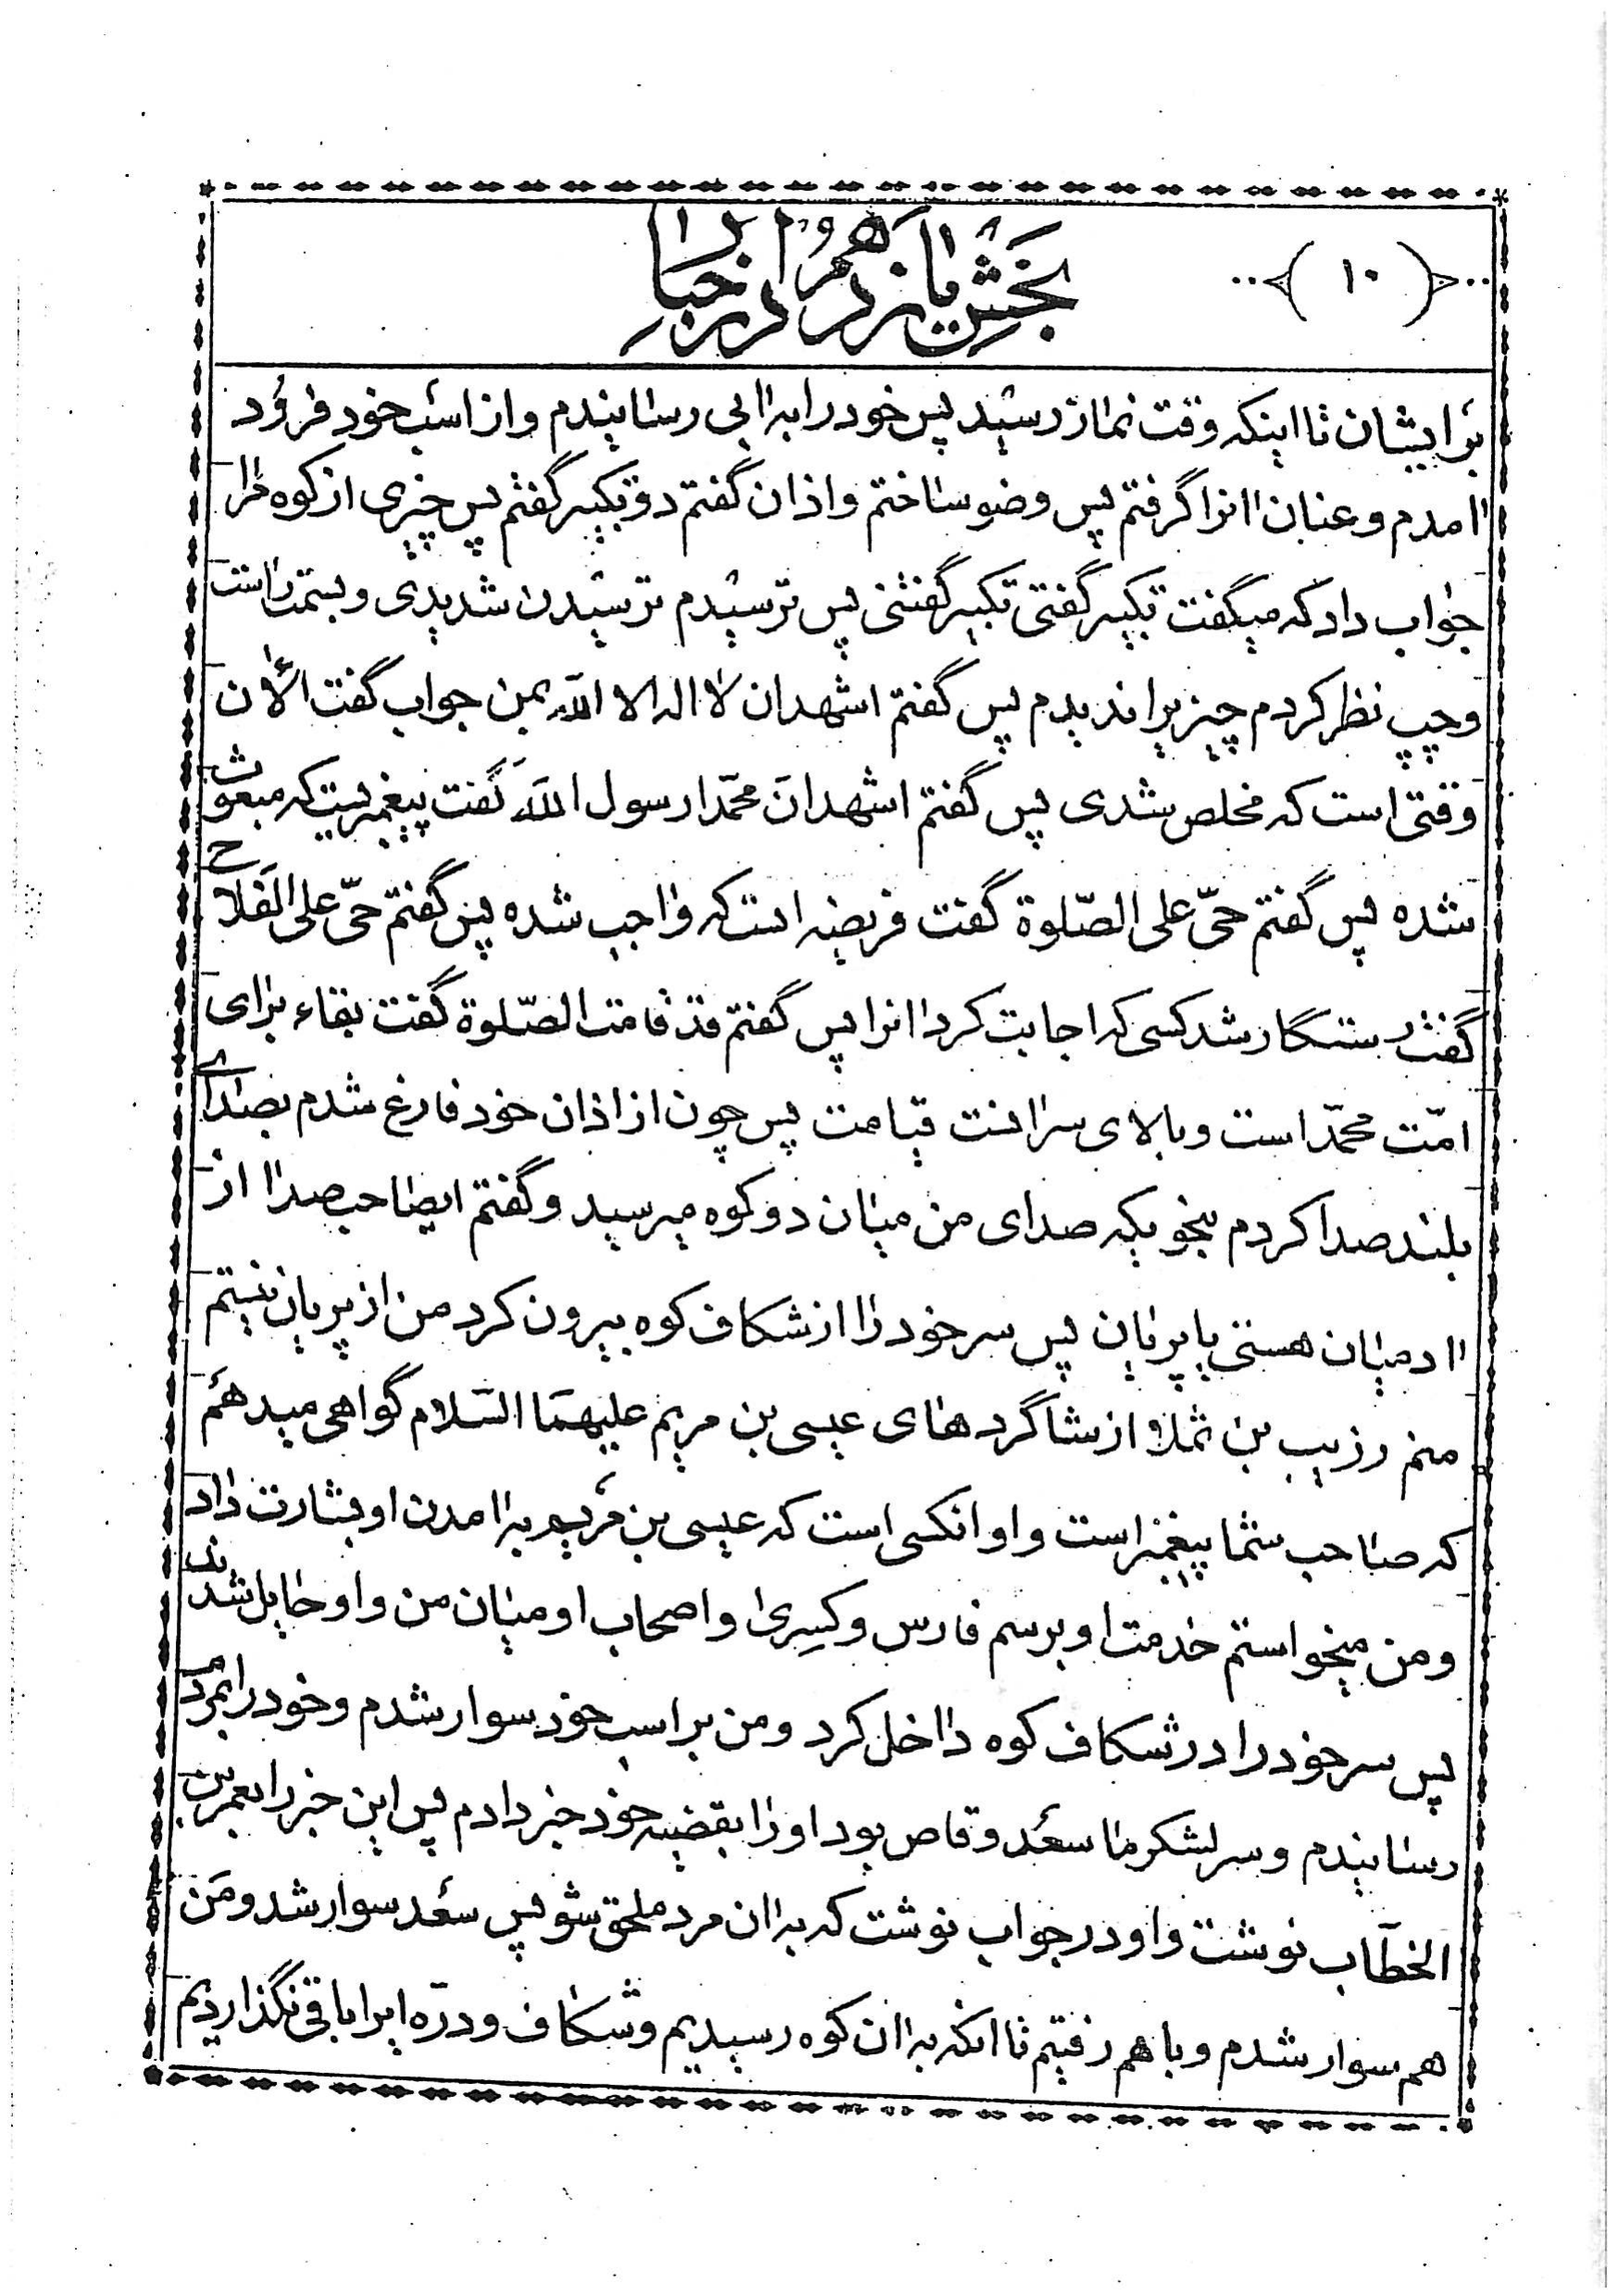 بخش یازدهم در اخبار
(۱۰)
برایشان تا اینکه وقت نماز رسید پس خود را به اابی رسانیدم و از اسب خود فرود
اامدم و عنان اانرا گرفتم پس وضو ساختم و اذان گفتم دو تکبیر گفتم پس چیزی از کوه مرا
جواب داد که میگفت تکبیر گفتی تکبیر گفتی پس ترسیدم ترسیدن شدیدی و بسمت راست
و چپ نظر کردم چیزیرا ندیدم پس گفتم اشهد ان لا اله الا الله بمن جواب گفت الاان
وقتی است که مخلص شدی پس گفتم اشهد ان محمّدا رسول الله گفت پیغمبریست که مبعوث
شده پس گفتم حیّ علی الصّلوة گفت فریضه است که واجب شده پس گفتم حیّ علی الفلاح
گفت رستگار شد کسی که اجابت کرد اانرا پس گفتم قد قامت الصّلوة گفت بقاء برای
امّت محمّد است و بالای سر اانست قیامت پس چون از اذان خود فارغ شدم بصدای
بلند صدا کردم بنحویکه صدای من میان دو کوه میرسید و گفتم ایصاحب صدا از
اادمیان هستی یا پریان پس سر خود را از شکاف کوه بیرون کرد من از پریان نیستم
منم رزیب بن ثملا از شاگردهای عیسی بن مریم علیهما السّلام گواهی میدهم
که صاحب شما پیغمبر است و او انکسی است که عیسی بن مریم به اامدن او بشارت داد
و من میخواستم خدمت او برسم فارس و کسری و اصحاب او میان من و او حایل شدند
پس سر خود را در شکاف کوه داخل کرد و من بر اسب خود سوار شدم و خود را بمردم
رسانیدم و سر لشکر ما سعد وقاص بود او را بقضیه خود خبر دادم پس این خبر را بعمر بن
الخطّاب نوشت و او در جواب نوشت که به اان مرد ملحق شو پس سعد سوار شد و من
هم سوار شدم و با هم رفتیم تا اانکه به اان کوه رسیدیم و شکاف و درّه ایرا باقی نگذاردیم